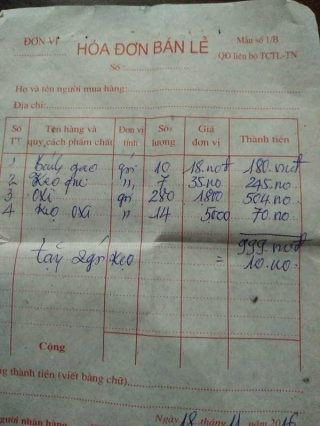 ĐƠN VỊ
Mẫu số 1/B
HÓA ĐƠN BÁN LẺ
QĐ liên bộ TCTL-TN
Số
Họ và tên người mua hàng:
Địa chỉ:
Số TT Tên hàng và quy cách phẩm chất Đơn vị tính Số lượng Giá đơn vị Thành tiền
1 gạo gói 10 180
2 Kẹo " 7 35.no 245.no.
3 Oxi gói 280 1800 504.no.
4 kẹo Oxi " 14 5000 70.no.
999
tẩy 2gói kẹo = 10.no.
Cộng
thành tiền (viết bằng chữ)
Người nhận hàng
Ngày 18 tháng 11 năm 2016